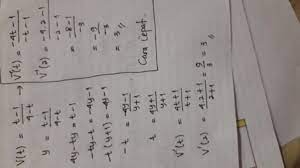 V(t) = t-1/4-t → V⁻¹(t) = -4t-1/-t-1
y = t-1/4-t
4y-ty = t-1
-ty-t = -4y-1
-t(y+1) = -4y-1
-t = -4y-1/y+1
t = 4y+1/y+1
V⁻¹(t) = 4t+1/t+1
V⁻¹(2) = 4.2+1/2+1 = 9/3 = 3
V⁻¹(2) = -4.2-1/-2-1
= -8-1/-3
= -9/-3
= 3 //
Cara cepat.